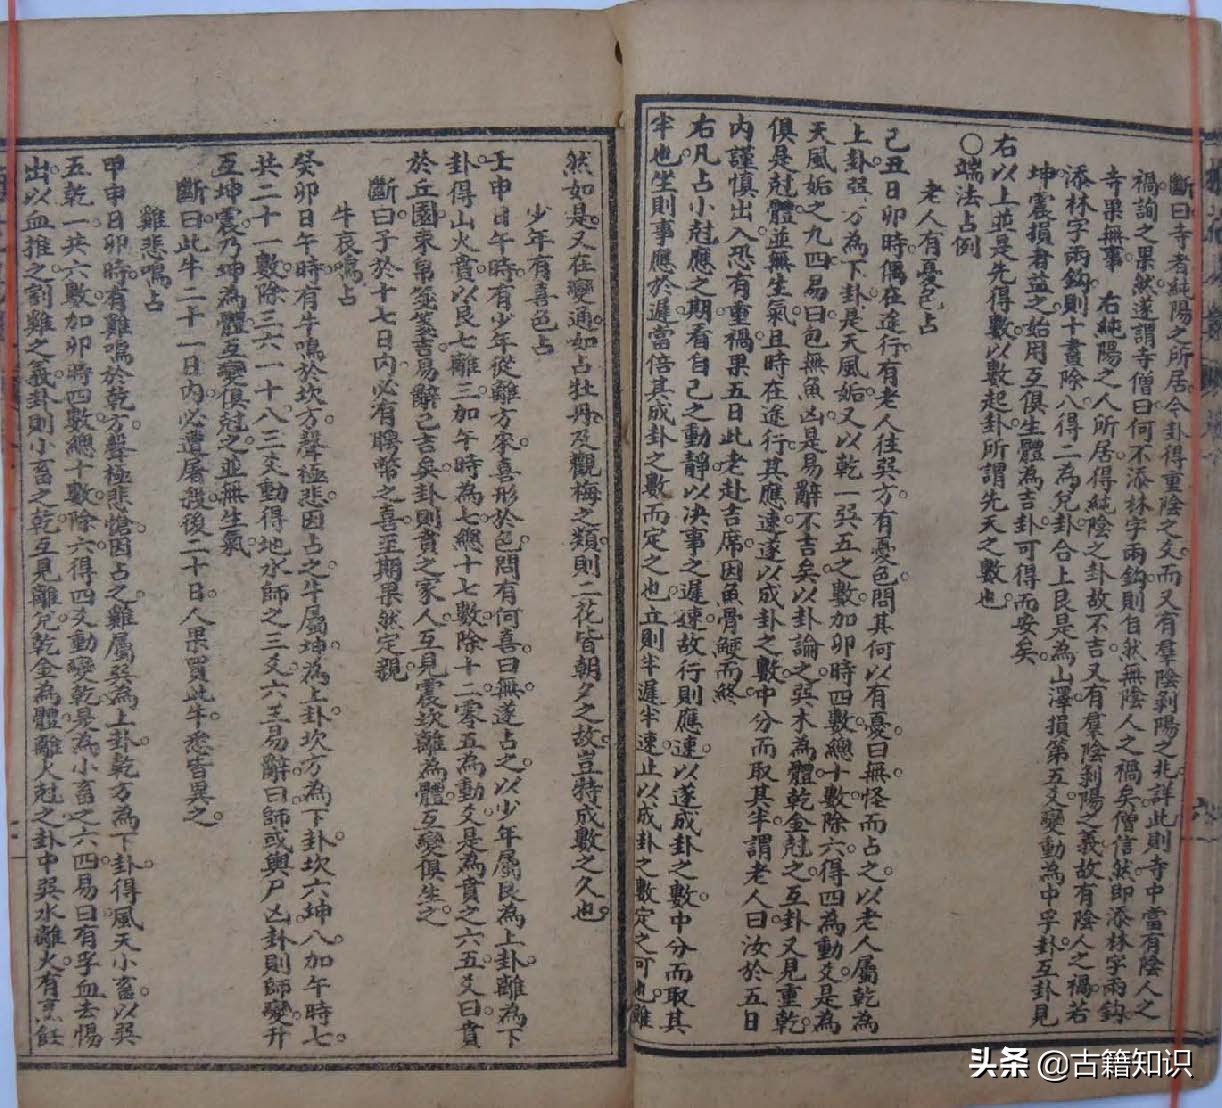 斷曰寺者純陽之所居今卦得重陰之爻而又有羣陰剥陽之兆詳此則寺中當有陰人之
禍詢之果然遂謂寺僧曰何不添林字兩鈎則自然無陰人之禍矣僧信然即添林字兩鈎
寺果無事 右純陽之人所居得純陰之卦故不吉又有羣陰剥陽之義故有陰人之禍若
添林字兩鈎則十畫除八得二為兌卦合上艮是為山澤損第五爻變動為中孚卦互卦見
坤震損者益之始用互俱生體為吉卦可得而安矣
右以上並是先得數以數起卦所謂先天之數也
○端法占例
老人有憂色占
己丑日卯時偶在途行有老人往巽方有憂色問其何以有憂曰無怪而占之以老人屬乾為
上卦巽方為下卦是天風姤又以乾一巽五之數加卯時四數總十數除六得四為動爻是為
天風姤之九四易曰包無魚凶是易辭不吉矣以卦論之巽木為體乾金尅之互卦又見重乾
俱是尅體並無生氣且時在途行其應速遂以成卦之數中分而取其半謂老人曰汝於五日
内謹慎出入恐有重禍果五日此老赴吉席因魚骨鯁而終
右凡占小尅應之期看自己之動靜以决事之遲速故行則應速以遂成卦之數中分而取其
半也坐則事應於遲當倍其成卦之數而定之也立則半遲半速止以成卦之數定之可也雖
然如是又在變通如占牡丹及觀梅之類則二花皆朝夕之故豈特成數之久也
少年有喜色占
壬申日午時有少年從離方來喜形於色問有何喜曰無遂占之以少年屬艮為上卦離為下
卦得山火賁以艮七離三加午時為七總十七數除十二零五為動爻是為賁之六五爻曰賁
於丘園束帛戔戔吉易辭已吉矣卦則賁之家人互見震坎離為體互變俱生之
斷曰子於十七日内必有聘幣之喜至期果然定親
牛哀鳴占
癸卯日午時有牛鳴於坎方聲極悲因占之牛屬坤為上卦坎方為下卦坎六坤八加午時七
共二十一數除三六一十八三爻動得地水師之三爻六三易辭曰師或輿尸凶卦則師變升
互坤震乃坤為體互變俱尅之並無生氣
斷曰此牛二十一日内必遭屠殺後二十日人果買此牛悉皆異之
雞悲鳴占
甲申日卯時有雞鳴於乾方聲極悲愴因占之雞屬巽為上卦乾方為下卦得風天小畜以巽
五乾一共六數加卯時四數總十數除六得四爻動變乾是為小畜之六四易曰有孚血去惕
出以血推之割雞之義卦則小畜之乾互見離兌乾金為體離火尅之卦中巽木離火有烹飪
头条 @古籍知识